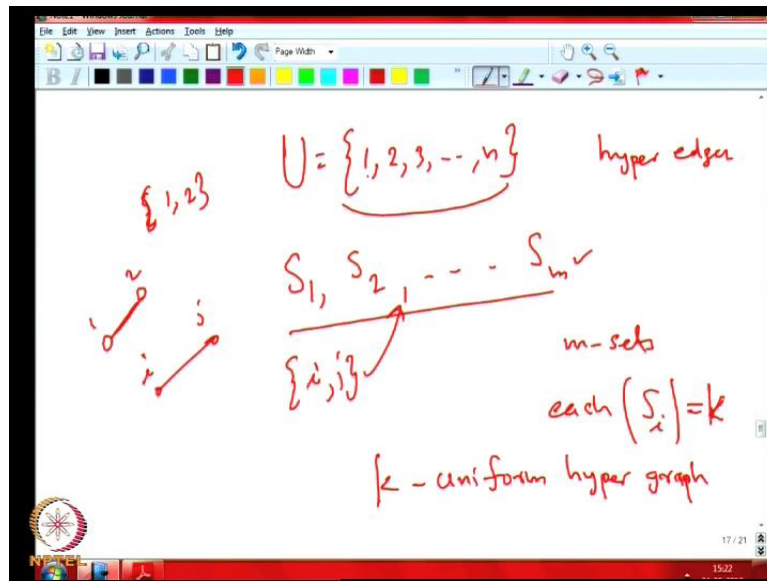 File Edit View Insert Actions Tools Help
Page Width
B I
U = {1, 2, 3, ---, n}
hyper edges
{1, 2}
S1, S2, --- Sm
1 2
i j
{i, j}
m-sets
each |Si| = k
k - uniform hyper graph
17 / 21
NPTEL
15:22